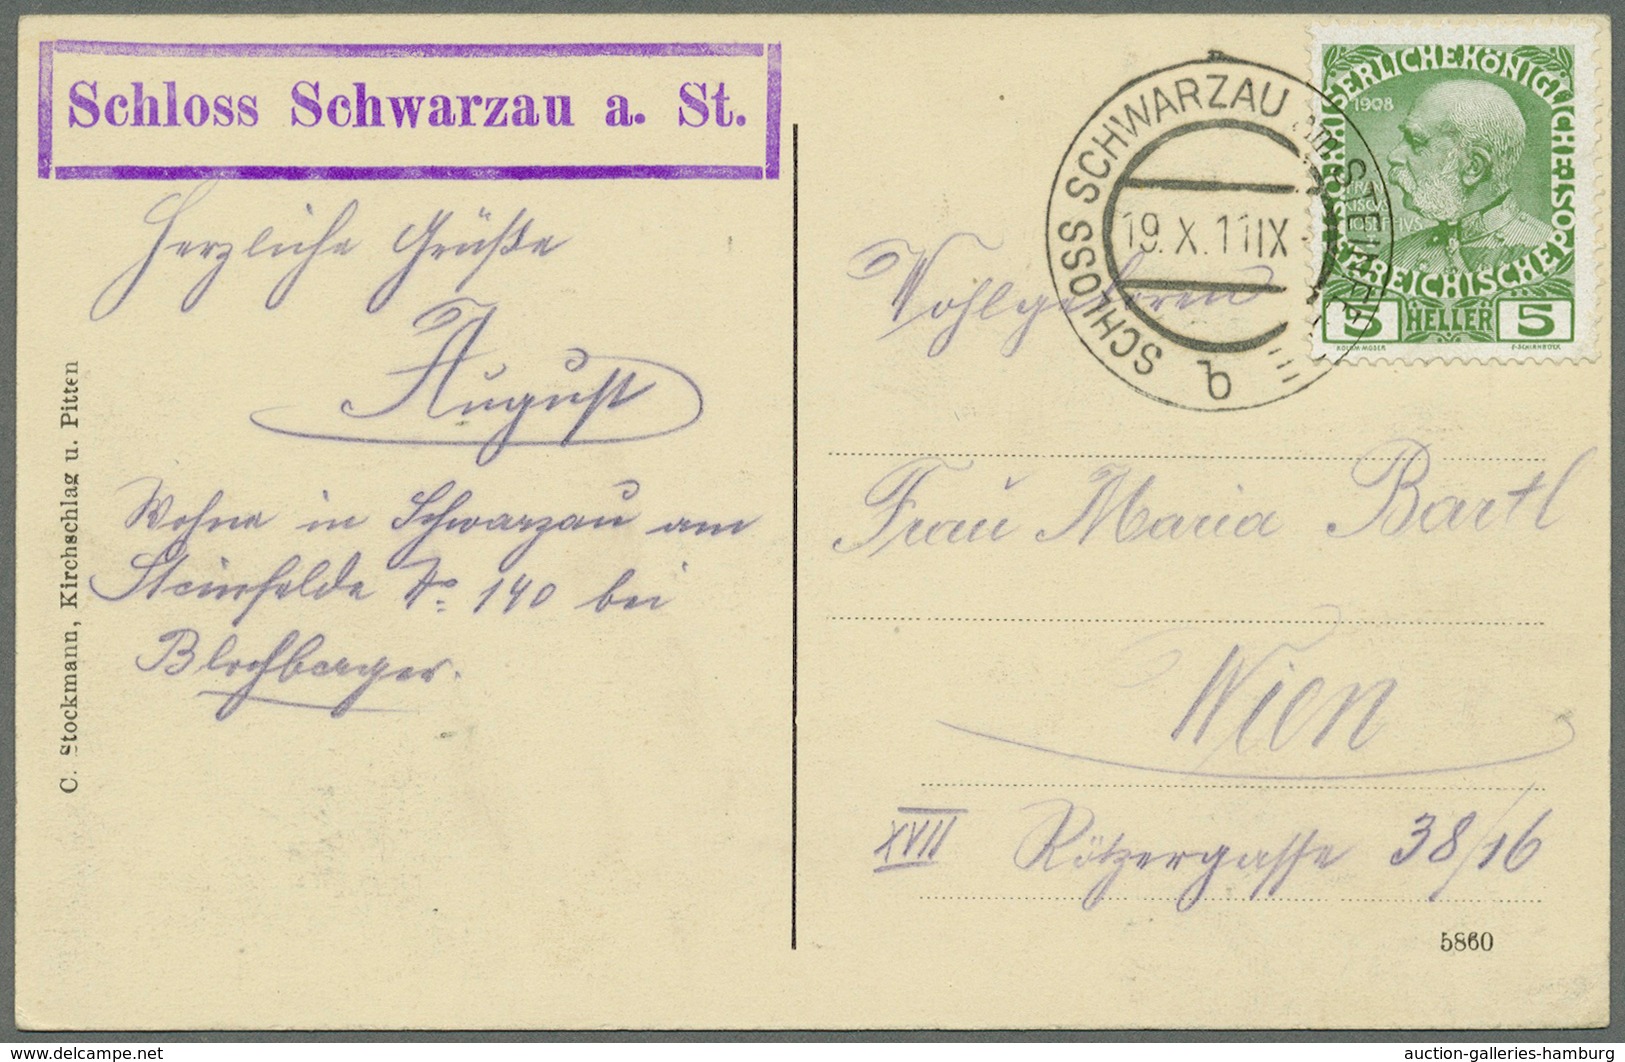 Schloss Schwarzau a. St.
Herzliche Grüße
August
Wohne in Schwarzau am
Steinfelde No 140 bei
C. Stockmann, Kirchschlag u. Pitten
SCHLOSS SCHWARZAU am STEINFELD
19.X.11 IX
b
KAISERLICHE KÖNIGLICHE ÖSTERREICHISCHE POST
1908
FRANCISCVS IOSEPHVS
5 HELLER 5
KOLOM·MOSER F·SCHIRNBÖCK
Wohlgeboren
Frau Maria Bartl
Wien
XVII Rötzergasse 38/16
5860
delcampe.net
auction-galleries-hamburg